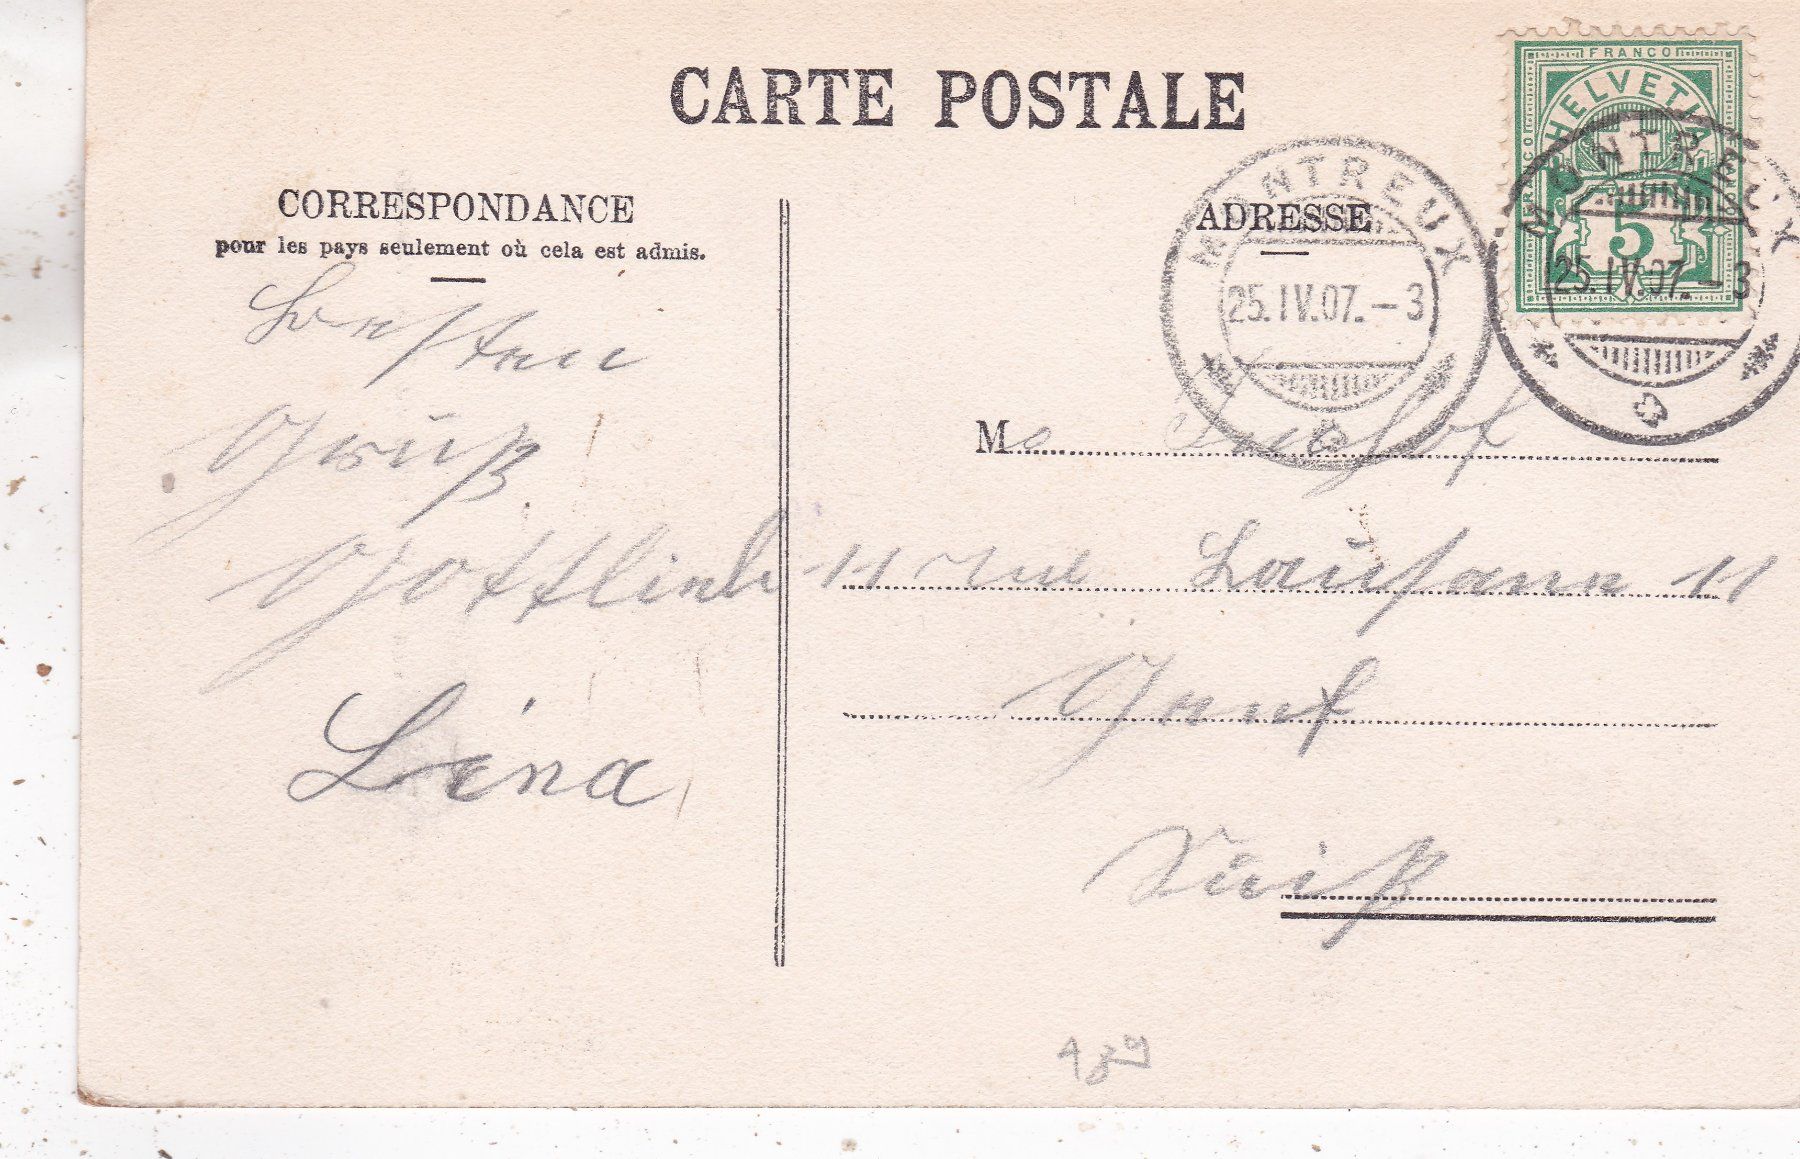 CARTE POSTALE
FRANCO
HELVETIA
FRANCO
FRANCO
5
MONTREUX
25.IV.07.–3
MONTREUX
25.IV.07.–3
CORRESPONDANCE
pour les pays seulement où cela est admis.
ADRESSE
Besten
Gruß
Gottlieb
Lina
M
11 Rue Lausane 11
Genf
189